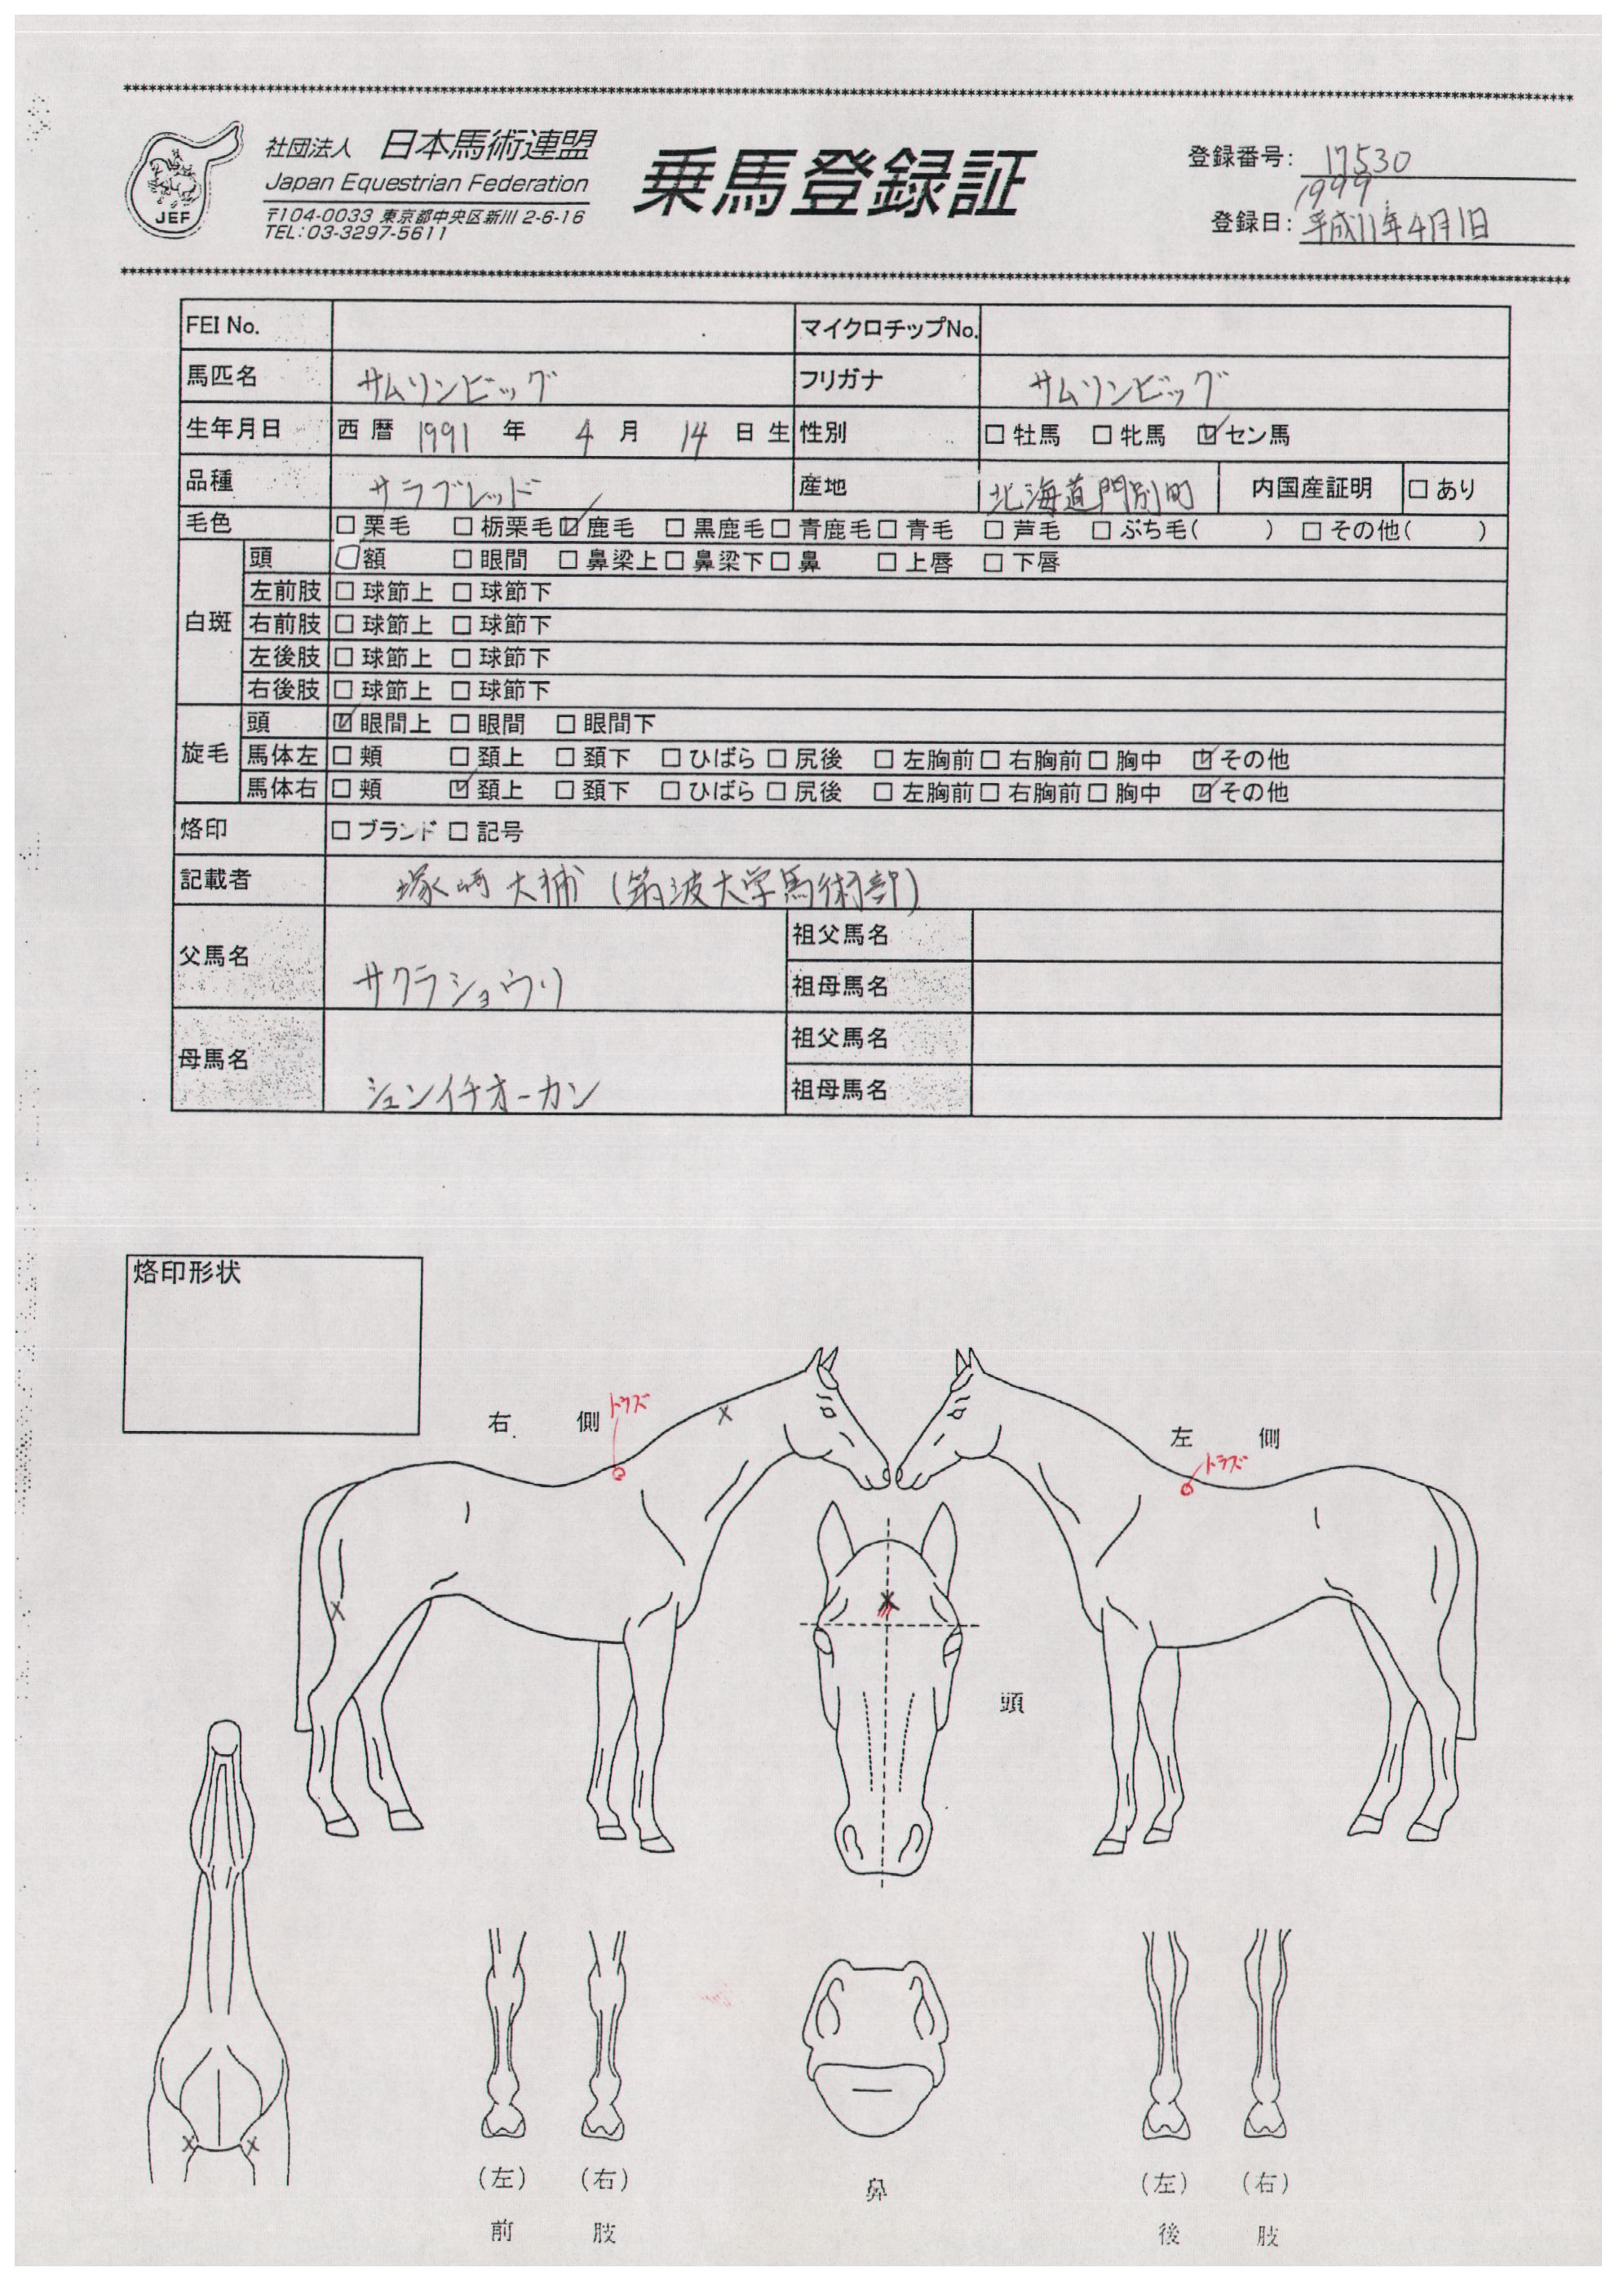 社団法人 日本馬術連盟
Japan Equestrian Federation
〒104-0033 東京都中央区新川 2-6-16
TEL:03-3297-5611
JEF
乗馬登録証
登録番号: 17530
1999
登録日: 平成11年4月1日
FEI No. マイクロチップNo.
馬匹名 サムソンビッグ フリガナ サムソンビッグ
生年月日 西暦 1991 年 4 月 14 日 生 性別 □ 牡馬 □ 牝馬 ☑ セン馬
品種 サラブレッド 産地 北海道門別町 内国産証明 □ あり
毛色 □ 栗毛 □ 栃栗毛 ☑ 鹿毛 □ 黒鹿毛 □ 青鹿毛 □ 青毛 □ 芦毛 □ ぶち毛( ) □ その他( )
白斑 頭 □ 額 □ 眼間 □ 鼻梁上 □ 鼻梁下 □ 鼻 □ 上唇 □ 下唇
左前肢 □ 球節上 □ 球節下
右前肢 □ 球節上 □ 球節下
左後肢 □ 球節上 □ 球節下
右後肢 □ 球節上 □ 球節下
旋毛 頭 ☑ 眼間上 □ 眼間 □ 眼間下
馬体左 □ 頬 □ 頚上 □ 頚下 □ ひばら □ 尻後 □ 左胸前 □ 右胸前 □ 胸中 ☑ その他
馬体右 □ 頬 ☑ 頚上 □ 頚下 □ ひばら □ 尻後 □ 左胸前 □ 右胸前 □ 胸中 ☑ その他
烙印 □ ブランド □ 記号
記載者 塚崎 大輔 (筑波大学馬術部)
父馬名 サクラショウリ 祖父馬名
祖母馬名
母馬名 シュンイチオーカン 祖父馬名
祖母馬名
烙印形状
右 側
左 側
頭
(左) (右)
前 肢
鼻
(左) (右)
後 肢